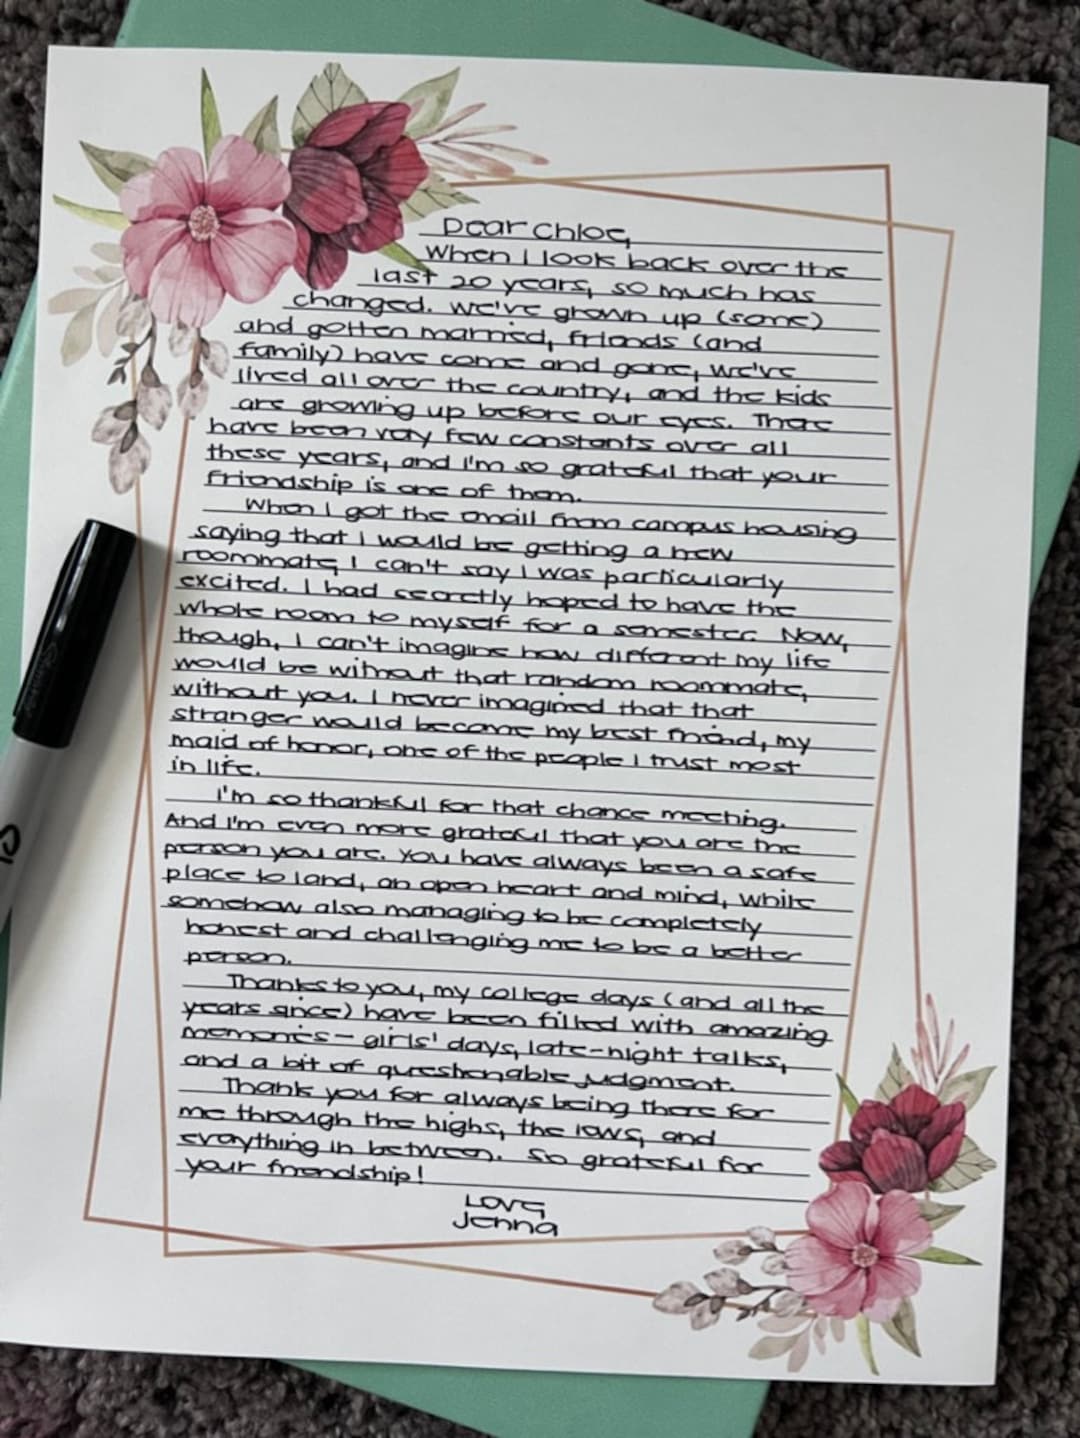 Dear Chloe,
When I look back over the
last 20 years, so much has
changed. We've grown up (some)
and gotten married, friends (and
family) have come and gone, we've
lived all over the country, and the kids
are growing up before our eyes. There
have been very few constants over all
these years, and I'm so grateful that your
friendship is one of them.
When I got the email from campus housing
saying that I would be getting a new
roommate, I can't say I was particularly
excited. I had secretly hoped to have the
whole room to myself for a semester. Now,
though, I can't imagine how different my life
would be without that random roommate,
without you. I never imagined that that
stranger would become my best friend, my
maid of honor, one of the people I trust most
in life.
I'm so thankful for that chance meeting.
And I'm even more grateful that you are the
person you are. You have always been a safe
place to land, an open heart and mind, while
somehow also managing to be completely
honest and challenging me to be a better
person.
Thanks to you, my college days (and all the
years since) have been filled with amazing
memories - girls' days, late-night talks,
and a bit of questionable judgment.
Thank you for always being there for
me through the highs, the lows, and
everything in between. So grateful for
your friendship!
Love,
Jenna